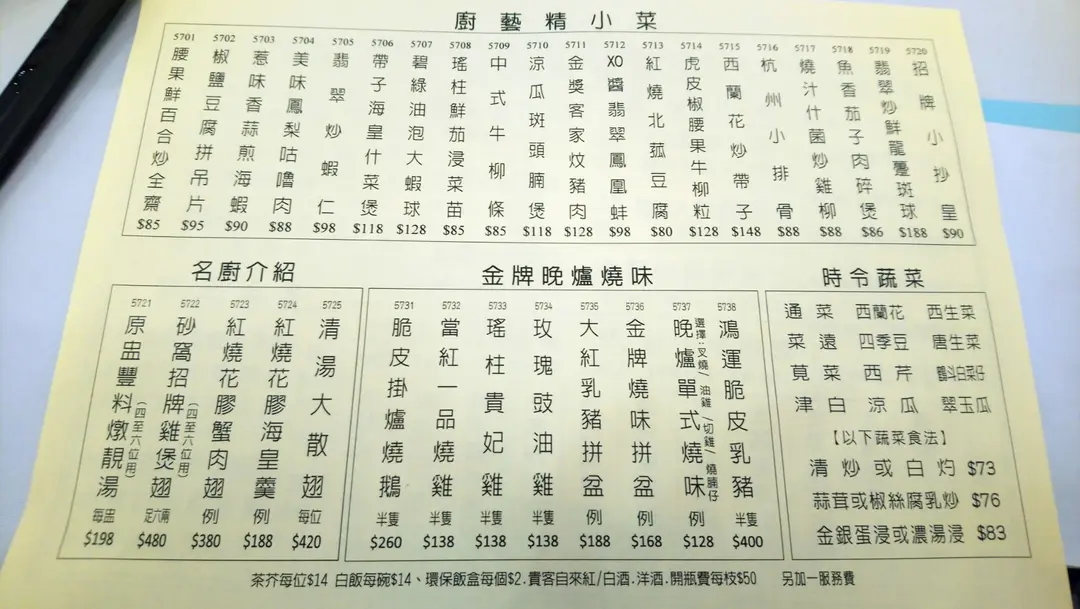 廚藝精小菜
5701 腰果鮮百合炒全齋 $85
5702 椒鹽豆腐拼吊片 $95
5703 惹味香蒜煎海蝦 $90
5704 美味鳳梨咕嚕肉 $88
5705 翡翠炒蝦仁 $98
5706 帶子海皇什菜煲 $118
5707 碧綠油泡大蝦球 $128
5708 瑤柱鮮茄浸菜苗 $85
5709 中式牛柳條 $85
5710 涼瓜斑頭腩煲 $118
5711 金獎客家炆豬肉 $128
5712 XO醬翡翠鳳凰蚌 $98
5713 紅燒北菰豆腐 $80
5714 虎皮椒腰果牛柳粒 $128
5715 西蘭花炒帶子 $148
5716 杭州小排骨 $88
5717 燒汁什菌炒雞柳 $88
5718 魚香茄子肉碎煲 $86
5719 翡翠炒鮮龍躉斑球 $188
5720 招牌小抄皇 $90
名廚介紹
5721 原盅豐料燉靚湯 (四至六位用) 每盅 $198
5722 砂窩招牌雞煲翅 (四至六位用) 足六兩 $480
5723 紅燒花膠蟹肉翅 例 $380
5724 紅燒花膠海皇羹 例 $188
5725 清湯大散翅 每位 $420
金牌晚爐燒味
5731 脆皮掛爐燒鵝 半隻 $260
5732 當紅一品燒雞 半隻 $138
5733 瑤柱貴妃雞 半隻 $138
5734 玫瑰豉油雞 半隻 $138
5735 大紅乳豬拼盆 例 $188
5736 金牌燒味拼盆 例 $168
5737 晚爐單式燒味 選擇:叉燒/油雞/切雞/燒腩仔 例 $128
5738 鴻運脆皮乳豬 半隻 $400
時令蔬菜
通菜 西蘭花 西生菜
菜遠 四季豆 唐生菜
莧菜 西芹 鶴斗白菜仔
津白 涼瓜 翠玉瓜
【以下蔬菜食法】
清炒或白灼 $73
蒜茸或椒絲腐乳炒 $76
金銀蛋浸或濃湯浸 $83
茶芥每位$14 白飯每碗$14、環保飯盒每個$2.貴客自來紅/白酒.洋酒.開瓶費每枝$50 另加一服務費